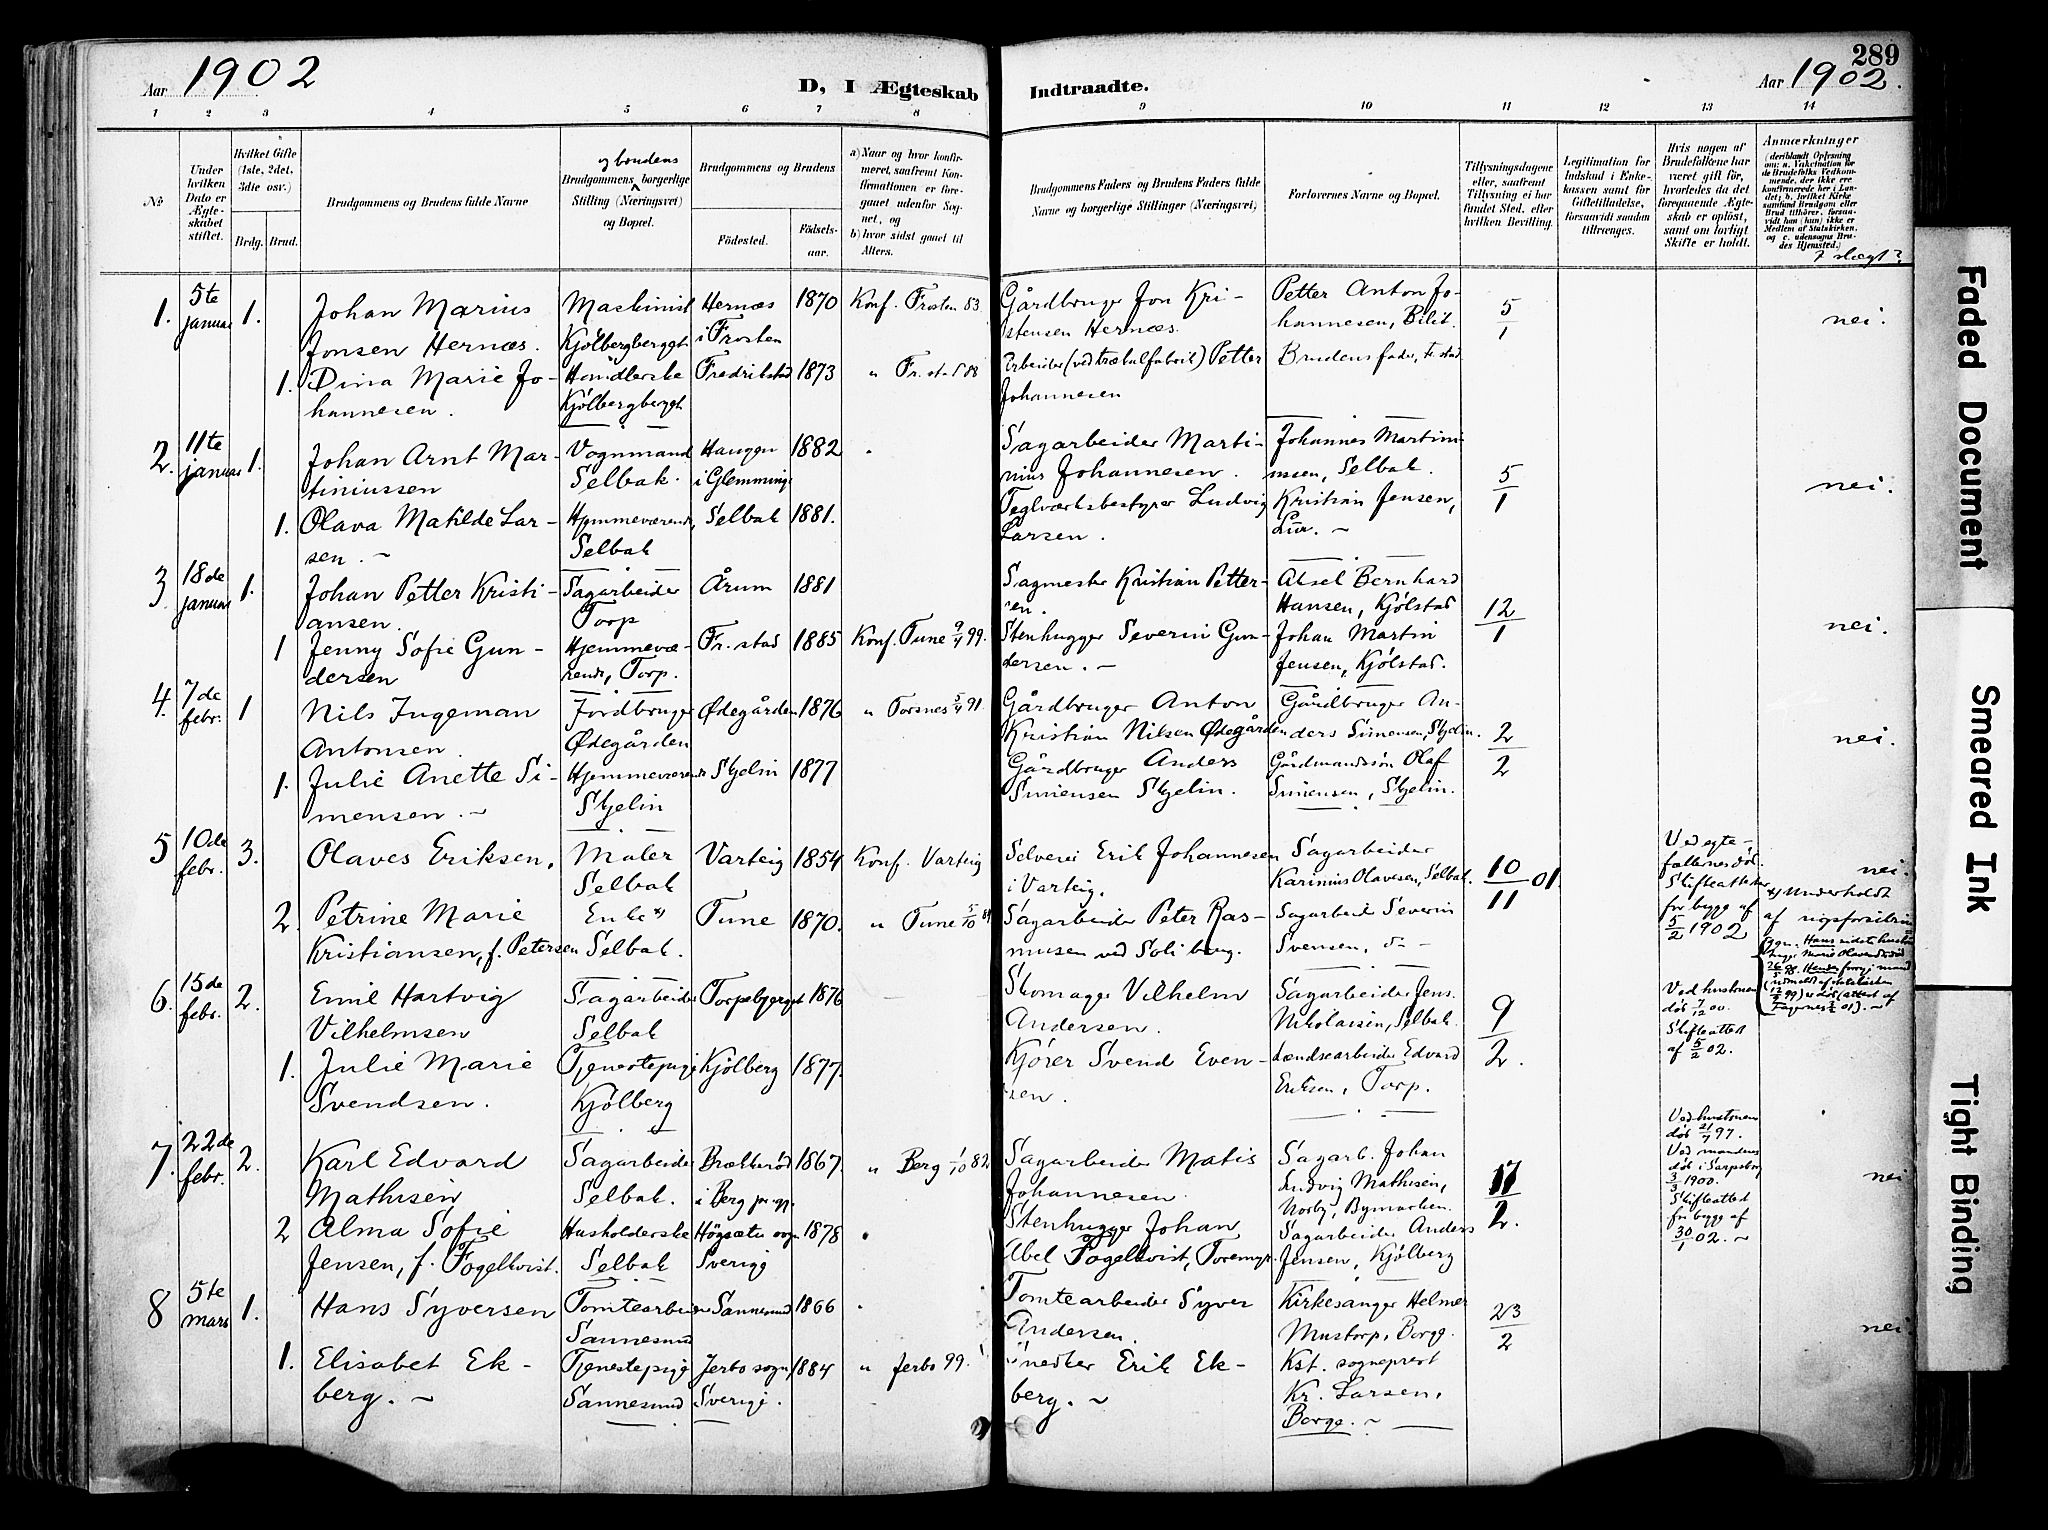 Aar 1902
D, I Ægteskab
Indtraadte.
289
Aar 1902.
1 2 3 4 5 6 7 8 9 10 11 12 13 14
No
Under hvilken Dato er Ægteskabet stiftet.
Hvilket Gifte (1ste, 2det, 3dte osv.)
Brdg. Brud.
Brudgommens og Brudens fulde Navne
og brudens
Brudgommens borgerlige Stilling (Næringsvei) og Bopæl.
Brudgommens og Brudens
Fødested.
Fødselsaar.
a) Naar og hvor konfirmeret, saafremt Konfirmationen er foregaaet udenfor Sognet, og
b) hvor sidst gaaet til Alters.
Brudgommens Faders og Brudens Faders fulde Navne og borgerlige Stillinger (Næringsvei)
Forlovernes Navne og Bopæl.
Tillysningsdagene eller, saafremt Tillysning ei har fundet Sted, efter hvilken Bevilling.
Legitimation for Indskud i Enkekassen samt for Giftetilladelse, forsaavidt saadan tiltrænges.
Hvis nogen af Brudefolkene har været gift før, hvorledes da det foregaaende Ægteskab er opløst, samt om lovligt Skifte er holdt.
Anmærkninger
(deriblandt Oplysning om: a. Vakcination for de Brudefolks Vedkommende, der ikke ere konfirmerede her i Landet; b. hvilket Kirkesamfund Brudgom eller Brud tilhører, forsaavidt han (hun) ikke er Medlem af Statskirken, og c. udensogns Brudes Hjemsted.)
slægt?
1. 5te januar 1.
Johan Marius
Jonsen Hernæs.
Maskinist
Kjølbergbergget
Hernæs
i Frosten
1870
Konf. Frosten 83.
Gårdbruger Jon Kri-
stensen Hernæs.
Petter Anton Jo-
hannesen, Bilit.
5/1
nei.
1. Dina Marie Jo-
hannesen.
Handlerske
Kjølbergbergget
Fredrikstad
1873
" Fr.stad 88
Arbeider (ved træhulfabrik) Petter
Johannesen
Brudens fader, Fr.stad
2. 11te januar 1.
Johan Arnt Mar-
tiniussen
Vognmand
Selbak.
Haugen
i Glemminge
1882
Sagarbeider Marti-
nius Johannesen.
Johannes Martini-
ussen, Selbak.
5/1
nei.
1. Olava Matilde Lar-
sen.
Hjemmeværende,
Selbak
Selbak
1881.
Teglværksbestyrer Ludvig
Larsen.
Kristian Jensen,
Lur.
3. 18de januar 1.
Johan Petter Kristi-
ansen.
Sagarbeider
Torp
Årum
1881
Sagmester Kristian Petter-
sen.
Aksel Bernhard
Hansen, Kjølstad
12/1
nei.
1 Jenny Sofie Gun-
dersen
Hjemmevæ-
rende, Torp.
Fr. stad
1885
Konf. Tune 9/4 99.
Stenhugger Severin Gun-
dersen.
Johan Martin
Jensen, Kjølstad.
4. 7de febr. 1
Nils Ingeman
Antonsen.
Jordbruger
Ødegården
Ødegården
1876
" Torsnes 5/4 91.
Gårdbruger Anton
Kristian Nilsen Ødegården
Gårdbruger An-
ders Simensen, Skjelin.
2/2
nei.
1. Julie Anette Si-
mensen.
Hjemmeværende
Skjelin
Skjelin
1877
Gårdbruger Anders
Simensen Skjelin.
Gårdmandssøn Olaf
Simensen, Skjelin.
5 10de febr. 3.
Olaves Eriksen,
Maler
Selbak
Varteig
1854
Konf. Varteig
Selveier Erik Johannesen
i Varteig.
Sagarbeider
Karinius Olavesen, Selbak.
10/11 01.
Ved egte-
fællernes død.
Skifteattester
for begge af
5/2 1902
nei.
x) Underholdt
af
2. Petrine Marie
Kristiansen, f. Petersen
Enke x)
Selbak.
Tune
1870.
" Tune 5/10 84
Sagarbeider Peter Ras-
musen ved Soli brug.
Sagarbeid. Severin
Svensen, do
6. 15de febr. 2.
Emil Hartvig
Vilhelmsen
Sagarbeider
Selbak
Torpebjerget
1876
Skomager Vilhelm
Andersen.
Sagarbeider Jens
Nikolaisen, Selbak.
9/2.
Ved hustruens
død 7/12 00.
Skifteattest
af 5/2 02.
1. Julie Marie
Svendsen.
Tjenestepige
Kjølberg
Kjølberg
1877.
Kjører Svend Even-
sen.
Lændsearbeider Edvard
Eriksen, Torp.
7. 22de febr. 2.
Karl Edvard
Mathisen
Sagarbeider
Selbak.
Brækkerød
i Berg pr.gj.
1867.
" Berg 1/10 82
Sagarbeider Matis
Johannesen.
Sagarb. Johan
Ludvig Mathisen,
Norby, Bymarken.
17/2.
Ved hustruens
død 21/7 97.
Ved mandens
død i Sarpsborg
3/3 1900.
Skifteattest
for begge af
30/1 02.
nei
2 Alma Sofie
Jensen, f. Fogelkvist.
Husholderske
Selbak
Högsäter sogn
Sverige
1878
Stenhugger Johan
Abel Fogelkvist, Toremyr.
Sagarbeider Anders
Jensen, Kjølberg
8 5te mars 1.
Hans Syversen
Tomtearbeider
Sannesund
Sannesund
1866
Tomtearbeider Syver
Andersen.
Kirkesanger Helmer
Mustorp, Borge.
23/2
nei.
1. Elisabet Ek-
berg.
Tjenestepige
Sannesund
Jerbo sogn,
Sverige.
1884
" Jerbo 99.
Snedker Erik Ek-
berg.
Kst. sogneprest
Kr. Larsen,
Borge.
Faded Document
Smeared Ink
Tight Binding